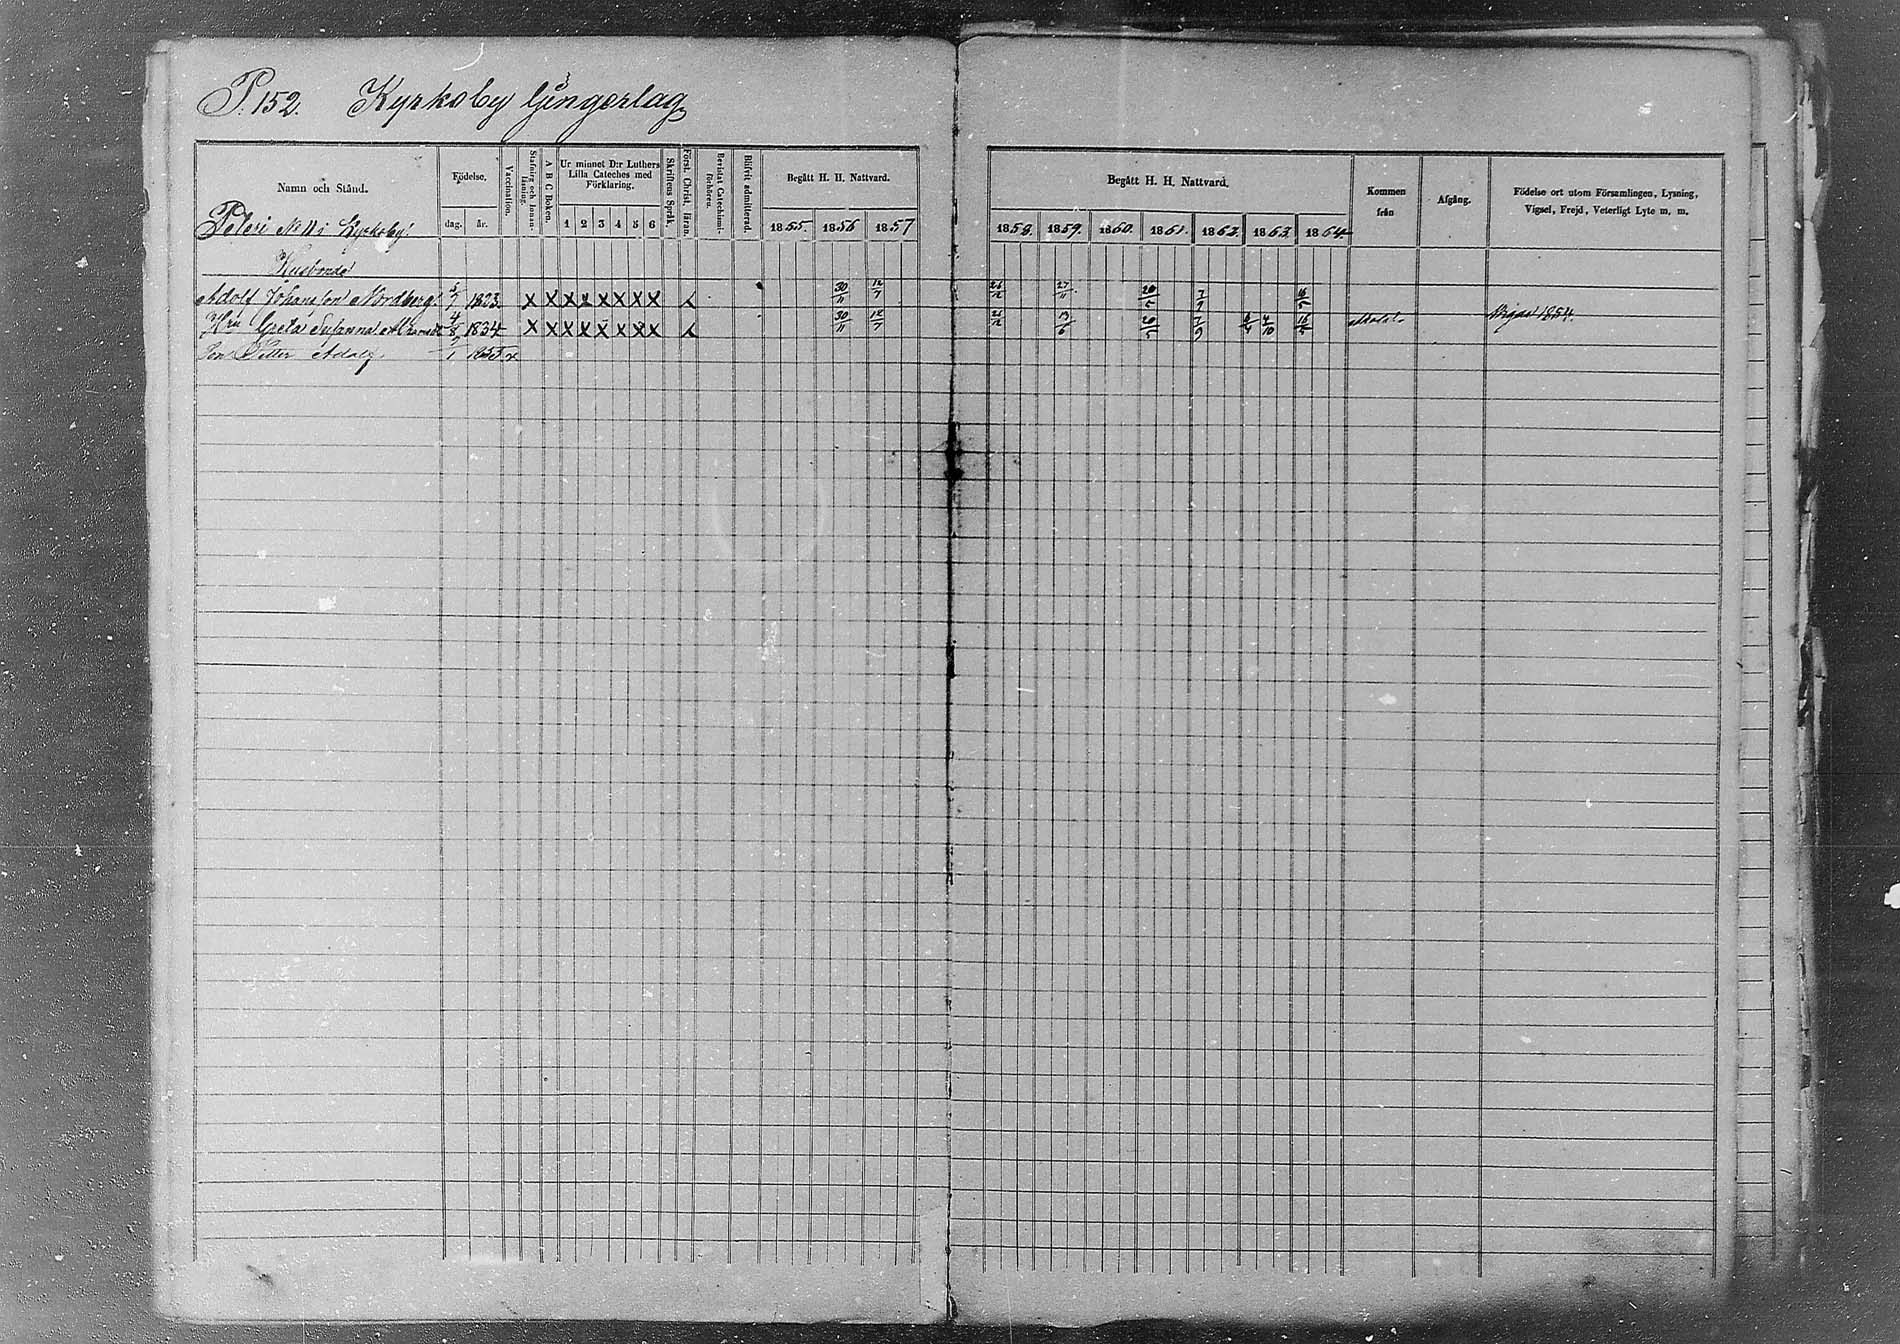 P. 152. Kyrkoby
Namn och Stånd.
Födelse.
dag. år.
Vaccination.
Stafning och Innanläsning.
A B C Boken.
Ur minnet D:r Luthers Lilla Cateches med Förklaring.
1 2 3 4 5 6
Skriftens Språk.
Först. Christ. läran.
Bevistat Catechismiförhören.
Blifvit admitterad.
Begått H. H. Nattvard.
1855. 1856 1857
Begått H. H. Nattvard.
1858. 1859. 1860. 1861. 1862. 1863. 1864.
Kommen från
Afgång.
Födelse ort utom Församlingen, Lysning, Vigsel, Frejd, Veterligt Lyte m. m.
Peteri Kyrkoby.
Husbonde
Adolf Johansson Nordberg 1823. x x x x x x x x 30/11 12/7 26/12 27/11 20/5 7/9 15/5
Hu Greta Susanna 4/8 1834 x x x x x x x x 30/11 12/7 26/12 13/6 20/5 7/9 4/10 15/5 Vigde 1854.
Son Petter Adolf 1855. x